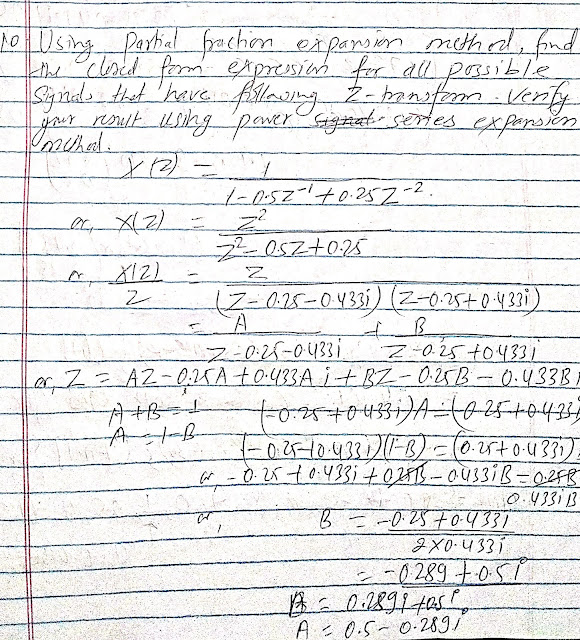 10 Using partial fraction expansion method, find
the closed form expression for all possible
signals that have following Z-transform. Verify
your result using power signal series expansion
method.
X(Z) = 1
1-0.5Z⁻¹+0.25Z⁻².
or, X(Z) = Z²
Z²-0.5Z+0.25
or, X(Z) = Z
Z (Z-0.25-0.433i) (Z-0.25+0.433i)
= A + B
Z-0.25-0.433i Z-0.25+0.433i
or, Z = AZ-0.25A+0.433Ai+BZ-0.25B-0.433Bi
A+B=1 (-0.25+0.433i)A=(0.25+0.433i)
A=1-B
(-0.25+0.433i)(1-B)=(0.25+0.433i)
or, -0.25+0.433i+0.25B-0.433iB=0.25B
0.433iB
or, B = -0.25+0.433i
2×0.433i
= -0.289+0.5i
i
B = 0.289i+0.5
A = 0.5-0.289i